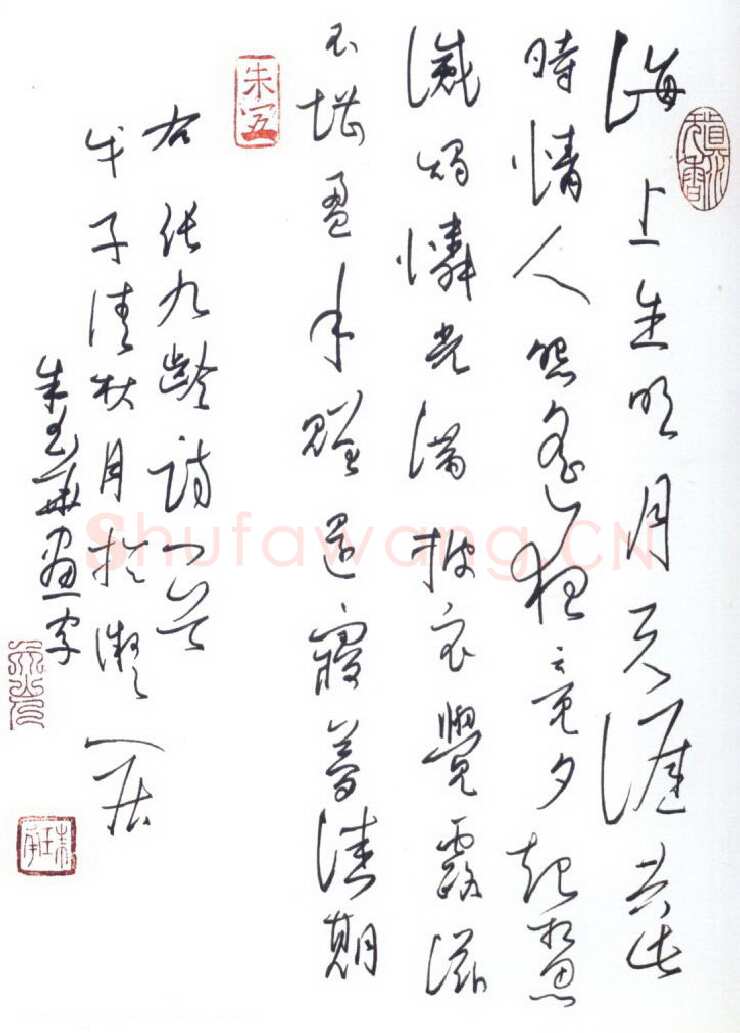 海上生明月天涯共此
時情人怨遙夜竟夕起相思
滅燭憐光滿披衣覺露滋
不堪盈手贈還寢夢佳期
右張九齡詩一首
子秋月於凝一居
朱
Shufawang.CN